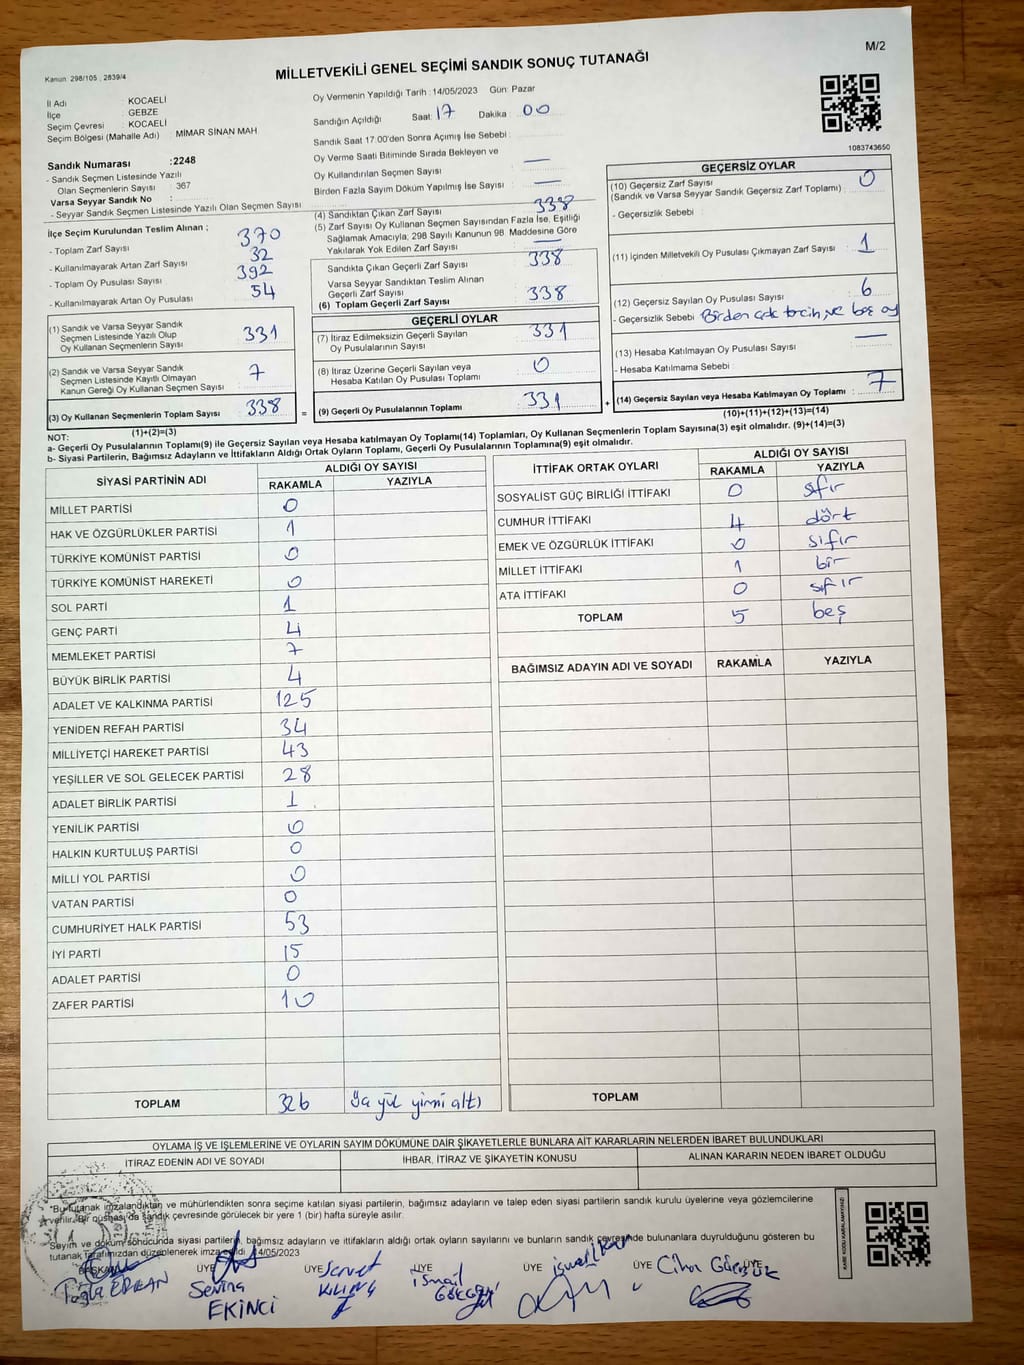 M/2
Kanun: 298/105 , 2839/4
MİLLETVEKİLİ GENEL SEÇİMİ SANDIK SONUÇ TUTANAĞI
İl Adı : KOCAELİ
İlçe : GEBZE
Seçim Çevresi : KOCAELİ
Seçim Bölgesi (Mahalle Adı) : MİMAR SİNAN MAH
Sandık Numarası :2248
- Sandık Seçmen Listesinde Yazılı
Olan Seçmenlerin Sayısı : 367
Varsa Seyyar Sandık No :
- Seyyar Sandık Seçmen Listesinde Yazılı Olan Seçmen Sayısı :
Oy Vermenin Yapıldığı Tarih : 14/05/2023 Gün: Pazar
Sandığın Açıldığı Saat: 17 Dakika : 00
Sandık Saat 17.00'den Sonra Açımış İse Sebebi :
Oy Verme Saati Bitiminde Sırada Bekleyen ve
Oy Kullandırılan Seçmen Sayısı : —
Birden Fazla Sayım Döküm Yapılmış İse Sayısı : —
1083743650
İlçe Seçim Kurulundan Teslim Alınan ;
- Toplam Zarf Sayısı : 370
- Kullanılmayarak Artan Zarf Sayısı : 32
- Toplam Oy Pusulası Sayısı : 392
- Kullanılmayarak Artan Oy Pusulası : 54
(1) Sandık ve Varsa Seyyar Sandık
Seçmen Listesinde Yazılı Olup
Oy Kullanan Seçmenlerin Sayısı : 331
(2) Sandık ve Varsa Seyyar Sandık
Seçmen Listesinde Kayıtlı Olmayan
Kanun Gereği Oy Kullanan Seçmen Sayısı : 7
(3) Oy Kullanan Seçmenlerin Toplam Sayısı : 338
(1)+(2)=(3)
(4) Sandıktan Çıkan Zarf Sayısı : 338
(5) Zarf Sayısı Oy Kullanan Seçmen Sayısından Fazla İse, Eşitliği
Sağlamak Amacıyla, 298 Sayılı Kanunun 98. Maddesine Göre
Yakılarak Yok Edilen Zarf Sayısı : —
Sandıkta Çıkan Geçerli Zarf Sayısı : 338
Varsa Seyyar Sandıktan Teslim Alınan
Geçerli Zarf Sayısı :
(6) Toplam Geçerli Zarf Sayısı : 338
GEÇERLİ OYLAR
(7) İtiraz Edilmeksizin Geçerli Sayılan
Oy Pusulalarının Sayısı : 331
(8) İtiraz Üzerine Geçerli Sayılan veya
Hesaba Katılan Oy Pusulası Toplamı : 0
= (9) Geçerli Oy Pusulalarının Toplamı : 331
GEÇERSİZ OYLAR
(10) Geçersiz Zarf Sayısı : 0
(Sandık ve Varsa Seyyar Sandık Geçersiz Zarf Toplamı)
- Geçersizlik Sebebi :
(11) İçinden Milletvekili Oy Pusulası Çıkmayan Zarf Sayısı : 1
(12) Geçersiz Sayılan Oy Pusulası Sayısı : 6
- Geçersizlik Sebebi : Birden çok tercih ve boş oy
(13) Hesaba Katılmayan Oy Pusulası Sayısı : —
- Hesaba Katılmama Sebebi :
+ (14) Geçersiz Sayılan veya Hesaba Katılmayan Oy Toplamı : 7
(10)+(11)+(12)+(13)=(14)
NOT:
a- Geçerli Oy Pusulalarının Toplamı(9) ile Geçersiz Sayılan veya Hesaba katılmayan Oy Toplamı(14) Toplamları, Oy Kullanan Seçmenlerin Toplam Sayısına(3) eşit olmalıdır. (9)+(14)=(3)
b- Siyasi Partilerin, Bağımsız Adayların ve İttifakların Aldığı Ortak Oyların Toplamı, Geçerli Oy Pusulalarının Toplamına(9) eşit olmalıdır.
SİYASİ PARTİNİN ADI ALDIĞI OY SAYISI
RAKAMLA YAZIYLA
MİLLET PARTİSİ 0
HAK VE ÖZGÜRLÜKLER PARTİSİ 1
TÜRKİYE KOMÜNİST PARTİSİ 0
TÜRKİYE KOMÜNİST HAREKETİ 0
SOL PARTİ 1
GENÇ PARTİ 4
MEMLEKET PARTİSİ 7
BÜYÜK BİRLİK PARTİSİ 4
ADALET VE KALKINMA PARTİSİ 125
YENİDEN REFAH PARTİSİ 34
MİLLİYETÇİ HAREKET PARTİSİ 43
YEŞİLLER VE SOL GELECEK PARTİSİ 28
ADALET BİRLİK PARTİSİ 1
YENİLİK PARTİSİ 0
HALKIN KURTULUŞ PARTİSİ 0
MİLLİ YOL PARTİSİ 0
VATAN PARTİSİ 0
CUMHURİYET HALK PARTİSİ 53
İYİ PARTİ 15
ADALET PARTİSİ 0
ZAFER PARTİSİ 10
TOPLAM 326 Üç yüz yirmi altı
İTTİFAK ORTAK OYLARI ALDIĞI OY SAYISI
RAKAMLA YAZIYLA
SOSYALİST GÜÇ BİRLİĞİ İTTİFAKI 0 sıfır
CUMHUR İTTİFAKI 4 dört
EMEK VE ÖZGÜRLÜK İTTİFAKI 0 sıfır
MİLLET İTTİFAKI 1 bir
ATA İTTİFAKI 0 sıfır
TOPLAM 5 beş
BAĞIMSIZ ADAYIN ADI VE SOYADI RAKAMLA YAZIYLA
TOPLAM
OYLAMA İŞ VE İŞLEMLERİNE VE OYLARIN SAYIM DÖKÜMÜNE DAİR ŞİKAYETLERLE BUNLARA AİT KARARLARIN NELERDEN İBARET BULUNDUKLARI
İTİRAZ EDENİN ADI VE SOYADI İHBAR, İTİRAZ VE ŞİKAYETİN KONUSU ALINAN KARARIN NEDEN İBARET OLDUĞU
"Bu tutanak imzalandıktan ve mühürlendikten sonra seçime katılan siyasi partilerin, bağımsız adayların ve talep eden siyasi partilerin sandık kurulu üyelerine veya gözlemcilerine
verilir. Bir nüshası da sandık çevresinde görülecek bir yere 1 (bir) hafta süreyle asılır.
Sayım ve döküm sonucunda siyasi partilerin, bağımsız adayların ve ittifakların aldığı ortak oyların sayılarını ve bunların sandık çevresinde bulunanlara duyrulduğunu gösteren bu
tutanak tarafımızdan düzenlenerek imzalandı. 14/05/2023
KARE KODU KARALAMAYINIZ!
BAŞKAN ÜYE ÜYE ÜYE ÜYE ÜYE ÜYE
Tuğba ERCAN
Sevinç EKİNCİ
Servet KILINÇ
İsmail
Cihan